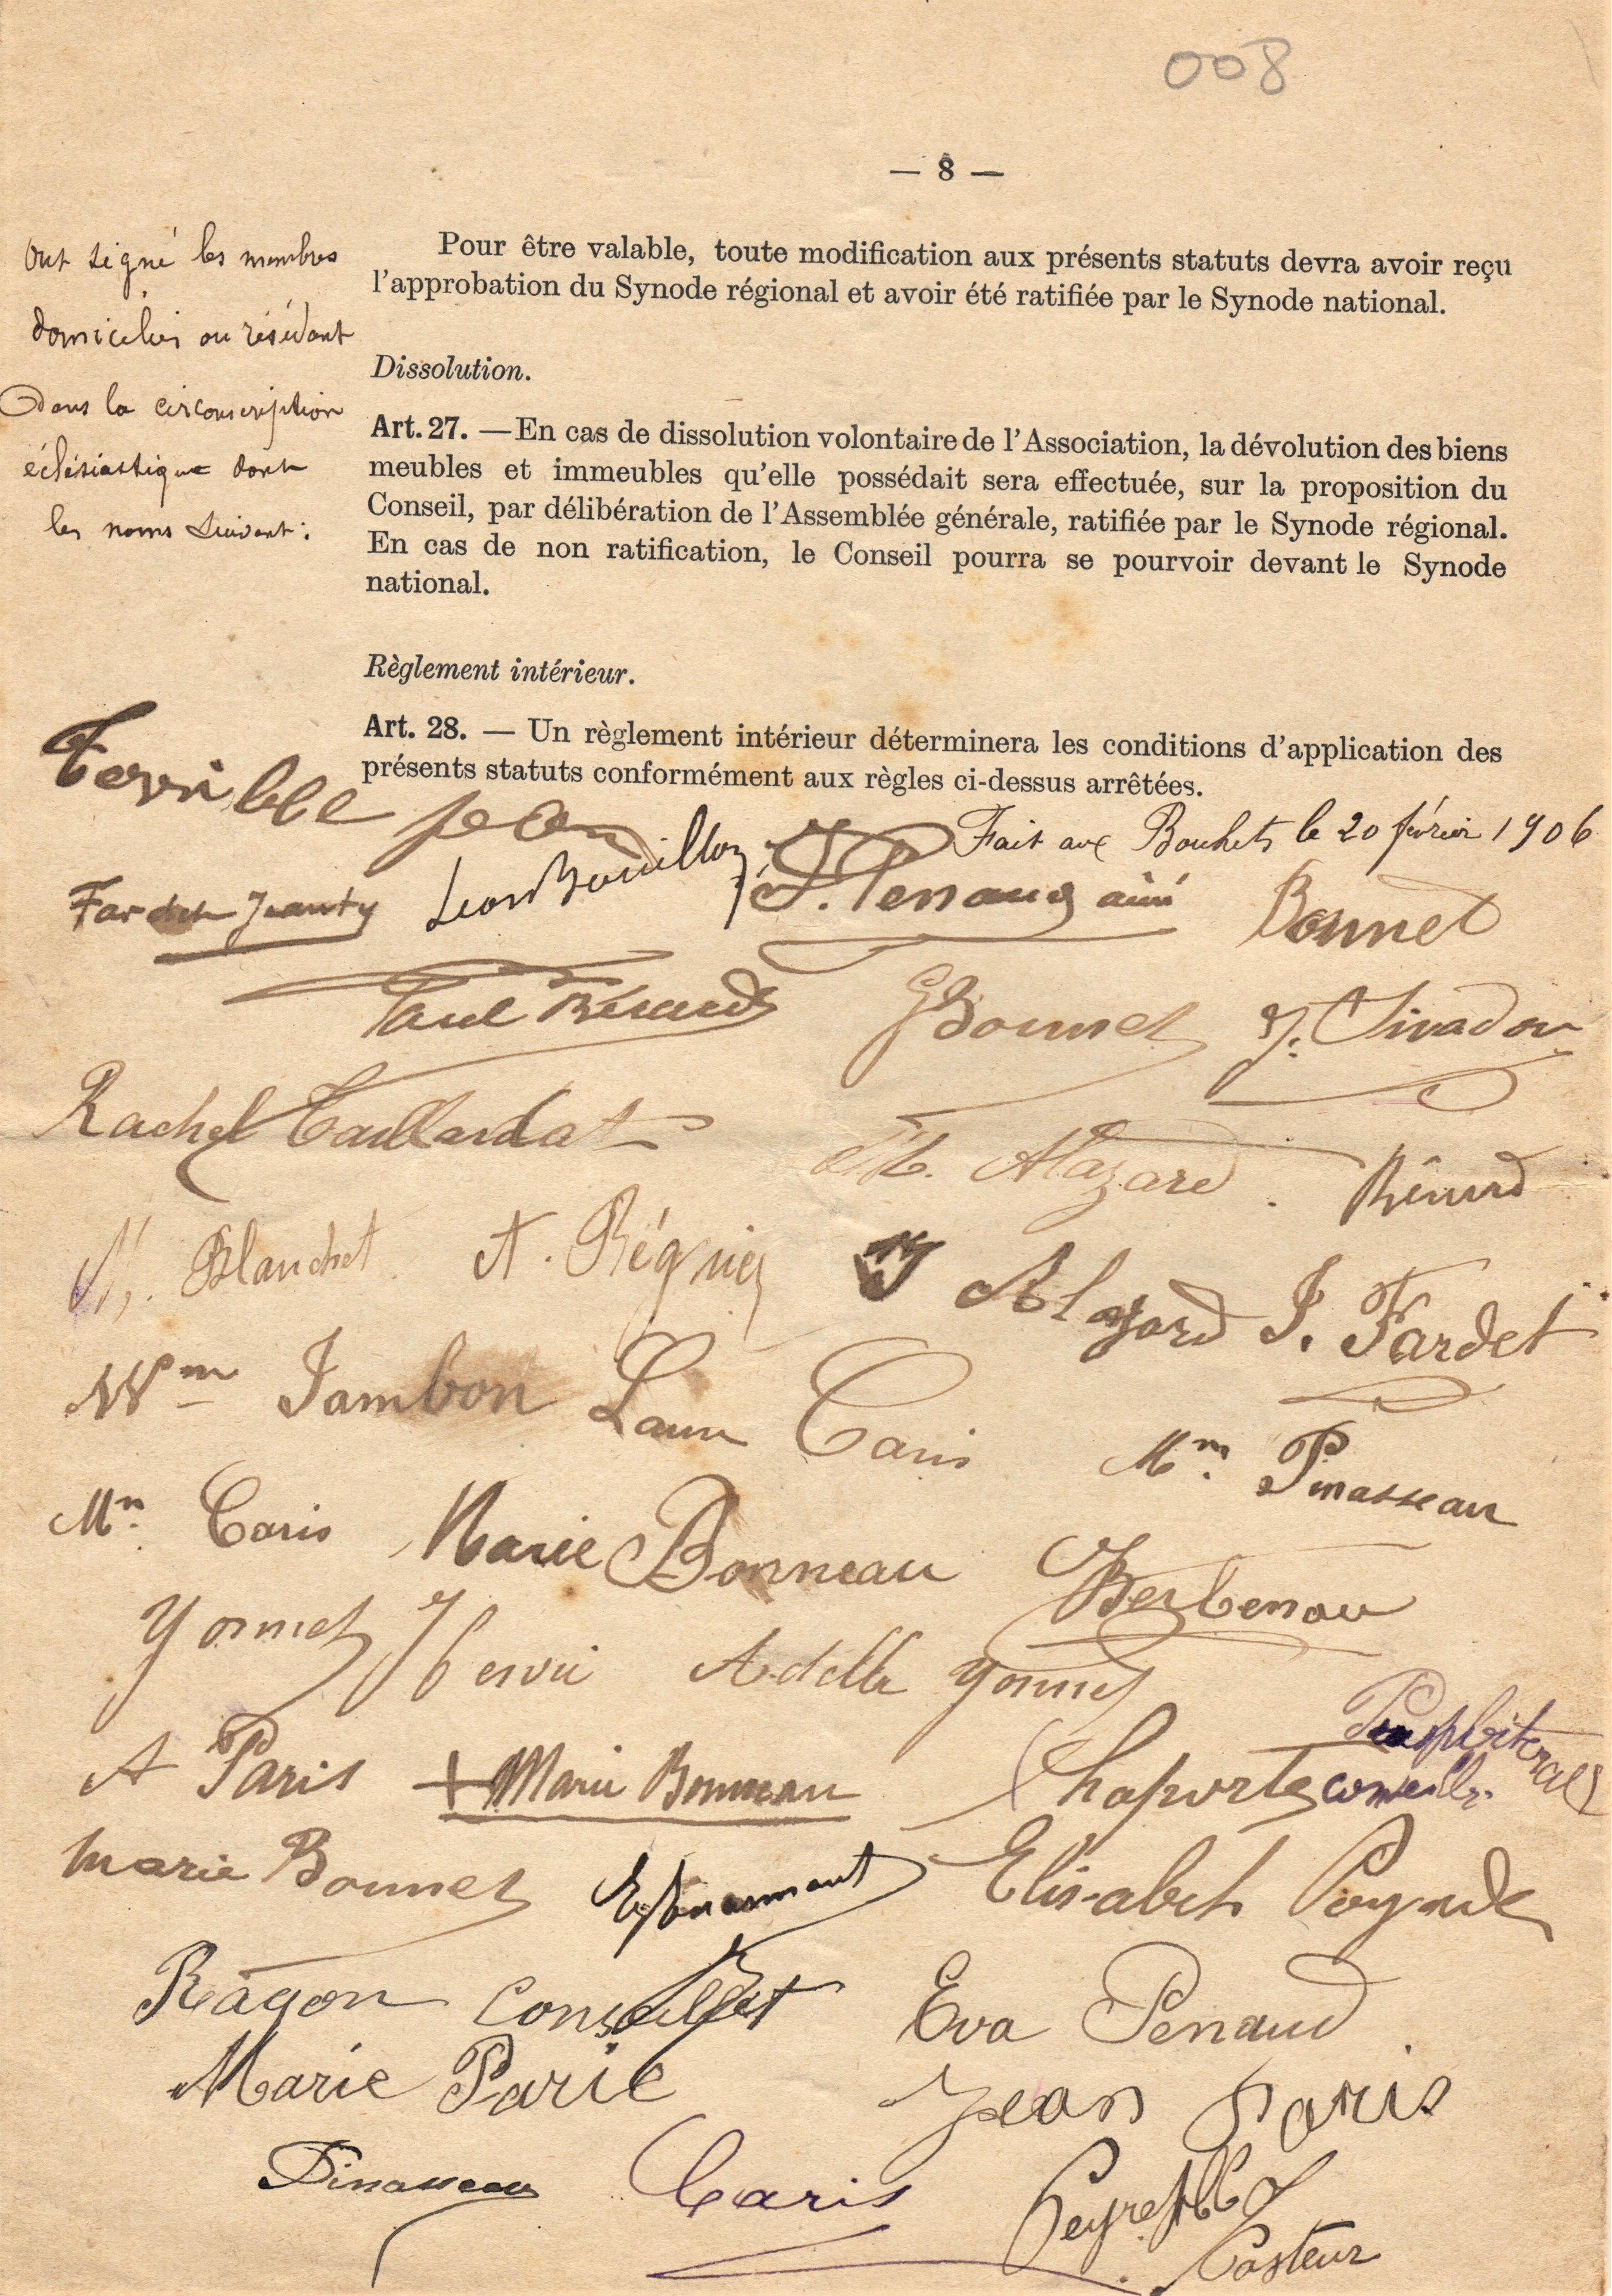 008
— 8 —
Ont signé les membres
domiciliés ou résidant
dans la circonscription
éclésiastique dont
les noms suivent :
Pour être valable, toute modification aux présents statuts devra avoir reçu
l'approbation du Synode régional et avoir été ratifiée par le Synode national.
Dissolution.
Art. 27. — En cas de dissolution volontaire de l'Association, la dévolution des biens
meubles et immeubles qu'elle possédait sera effectuée, sur la proposition du
Conseil, par délibération de l'Assemblée générale, ratifiée par le Synode régional.
En cas de non ratification, le Conseil pourra se pourvoir devant le Synode
national.
Règlement intérieur.
Art. 28. — Un règlement intérieur déterminera les conditions d'application des
présents statuts conformément aux règles ci-dessus arrêtées.
Fait aux Bouhets le 20 février 1906
Terrible jean
Fardet Jeanty Léon Bouillon Bonnet
Paul Bérard G Bonnet J. Sivadon
Rachel Taillardat M. Alazard Bérard
Blanchet A. Régnier Alazard J. Fardet
Jambon Laure Caris Mme Pinasseau
Mme Caris Marie Bonneau
Yonnet Adelle Yonnet
A Paris + Marie Bonneau Chaporte conseiller
Presbiteral
Marie Bonnet Elisabeth
Ragon Conseiller Eva Penaud
Marie Paris Jean Paris
Pinasseau Caris
Pasteur